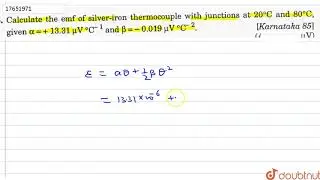 17651971
Calculate the emf of silver-iron thermocouple with junctions at 20°C and 80°C,
given α = + 13.31 μV °C⁻¹ and β = – 0.019 μV °C⁻². [Karnataka 85]
μV)
ε = αθ + ½βθ²
= 13.31 × 10⁻⁶ +
doubtnut